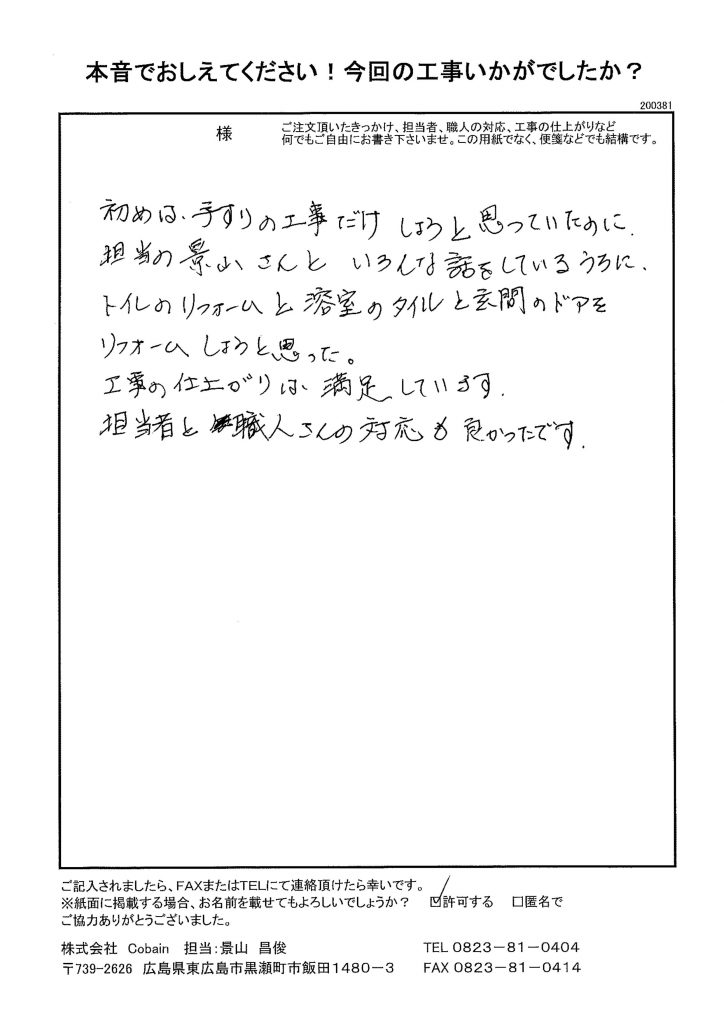 本音でおしえてください！今回の工事いかがでしたか？
200381
様
ご注文頂いたきっかけ、担当者、職人の対応、工事の仕上がりなど
何でもご自由にお書き下さいませ。この用紙でなく、便箋などでも結構です。
初めは、手すりの工事だけ しようと思っていたのに、
担当の景山さんと いろんな話をしているうちに、
トイレのリフォームと浴室のタイルと玄関のドアを
リフォームしようと思った。
工事の仕上がりは、満足しています．
担当者と 職人さんの対応も 良かったです．
ご記入されましたら、FAXまたはTELにて連絡頂けたら幸いです。
※紙面に掲載する場合、お名前を載せてもよろしいでしょうか？ ☑許可する ☐匿名で
ご協力ありがとうございました。
株式会社 Cobain 担当：景山 昌俊 TEL 0823－81－0404
〒739-2626 広島県東広島市黒瀬町市飯田1480－3 FAX 0823－81－0414